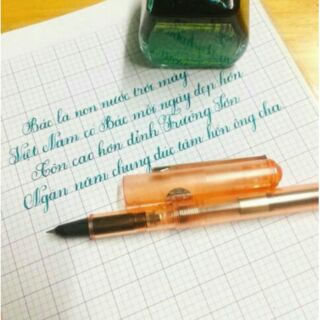 Bác là non nước trời mây
Việt Nam có Bác mỗi ngày đẹp hơn
Còn cao hơn đỉnh Trường Sơn
Ngàn năm chung đúc tâm hồn ông cha